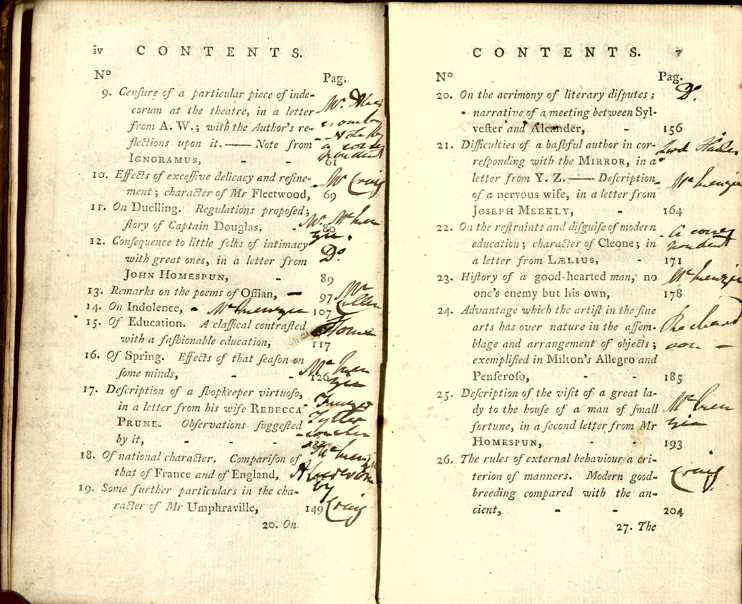 iv CONTENTS.
No Pag.
9. Cenſure of a particular piece of inde-
corum at the theatre, in a letter Mr
from A. W.; with the Author's re-
flections upon it. —— Note from
IGNORAMUS, - - 61
10. Effects of exceſſive delicacy and refine- Mr Craig
ment; character of Mr Fleetwood, 69
11. On Duelling. Regulations propoſed;
ſtory of Captain Douglas, - 80
12. Conſequence to little folks of intimacy
with great ones, in a letter from Do
JOHN HOMESPUN, - 89
13. Remarks on the poems of Oſſian, — 97 Mr
14. On Indolence, - Mr McKenzie 107 Cullen
15. Of Education. A claſſical contraſted Home
with a faſhionable education, 117
16. Of Spring. Effects of that ſeaſon on
ſome minds, - - 126
17. Deſcription of a ſhopkeeper virtuoſo,
in a letter from his wife REBECCA
PRUNE. Obſervations ſuggeſted Tytler
by it, - - -
18. Of national character. Compariſon of
that of France and of England,
19. Some further particulars in the cha- by
racter of Mr Umphraville, 149 Craig
20. On
CONTENTS. v
No Pag.
20. On the acrimony of literary diſputes; Do
narrative of a meeting between Syl-
veſter and Alcander, - 156
21. Difficulties of a baſhful author in cor- Lord Hailes
reſponding with the MIRROR, in a
letter from Y. Z. —— Deſcription
of a nervous wife, in a letter from
JOSEPH MEEKLY, - 164
22. On the reſtraints and diſguiſe of modern
education; character of Cleone; in
a letter from LÆLIUS, - 171
23. Hiſtory of a good-hearted man, no
one's enemy but his own, 178
24. Advantage which the artiſt in the fine
arts has over nature in the aſſem- Richard
blage and arrangement of objects; son —
exemplified in Milton's Allegro and
Penſeroſo, - - 185
25. Deſcription of the viſit of a great la-
dy to the houſe of a man of ſmall
fortune, in a ſecond letter from Mr
HOMESPUN, - - 193
26. The rules of external behaviour a cri- Craig
terion of manners. Modern good-
breeding compared with the an-
cient, - - 204
27. The